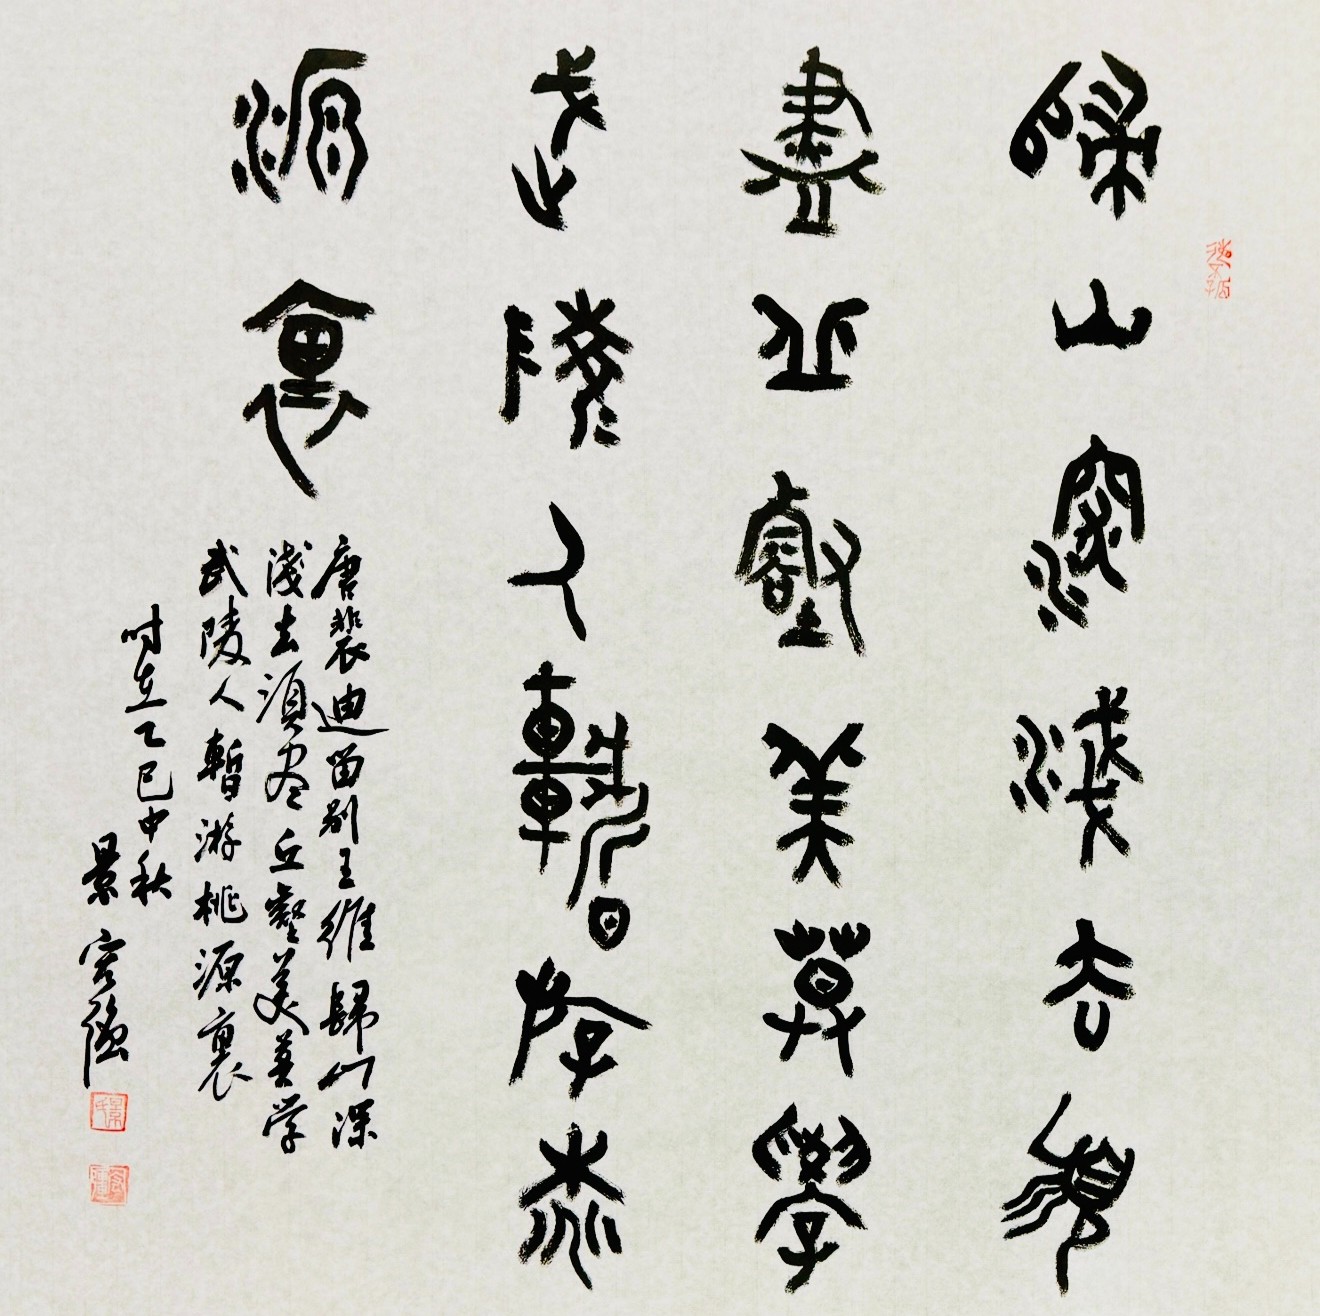 歸山深淺去須
盡丘壑美莫學
武陵人暫游桃
源裏
唐裴迪留别王維歸山深
淺去須尽丘壑美莫学
武陵人暫游桃源裏
时在乙巳中秋
景容隱